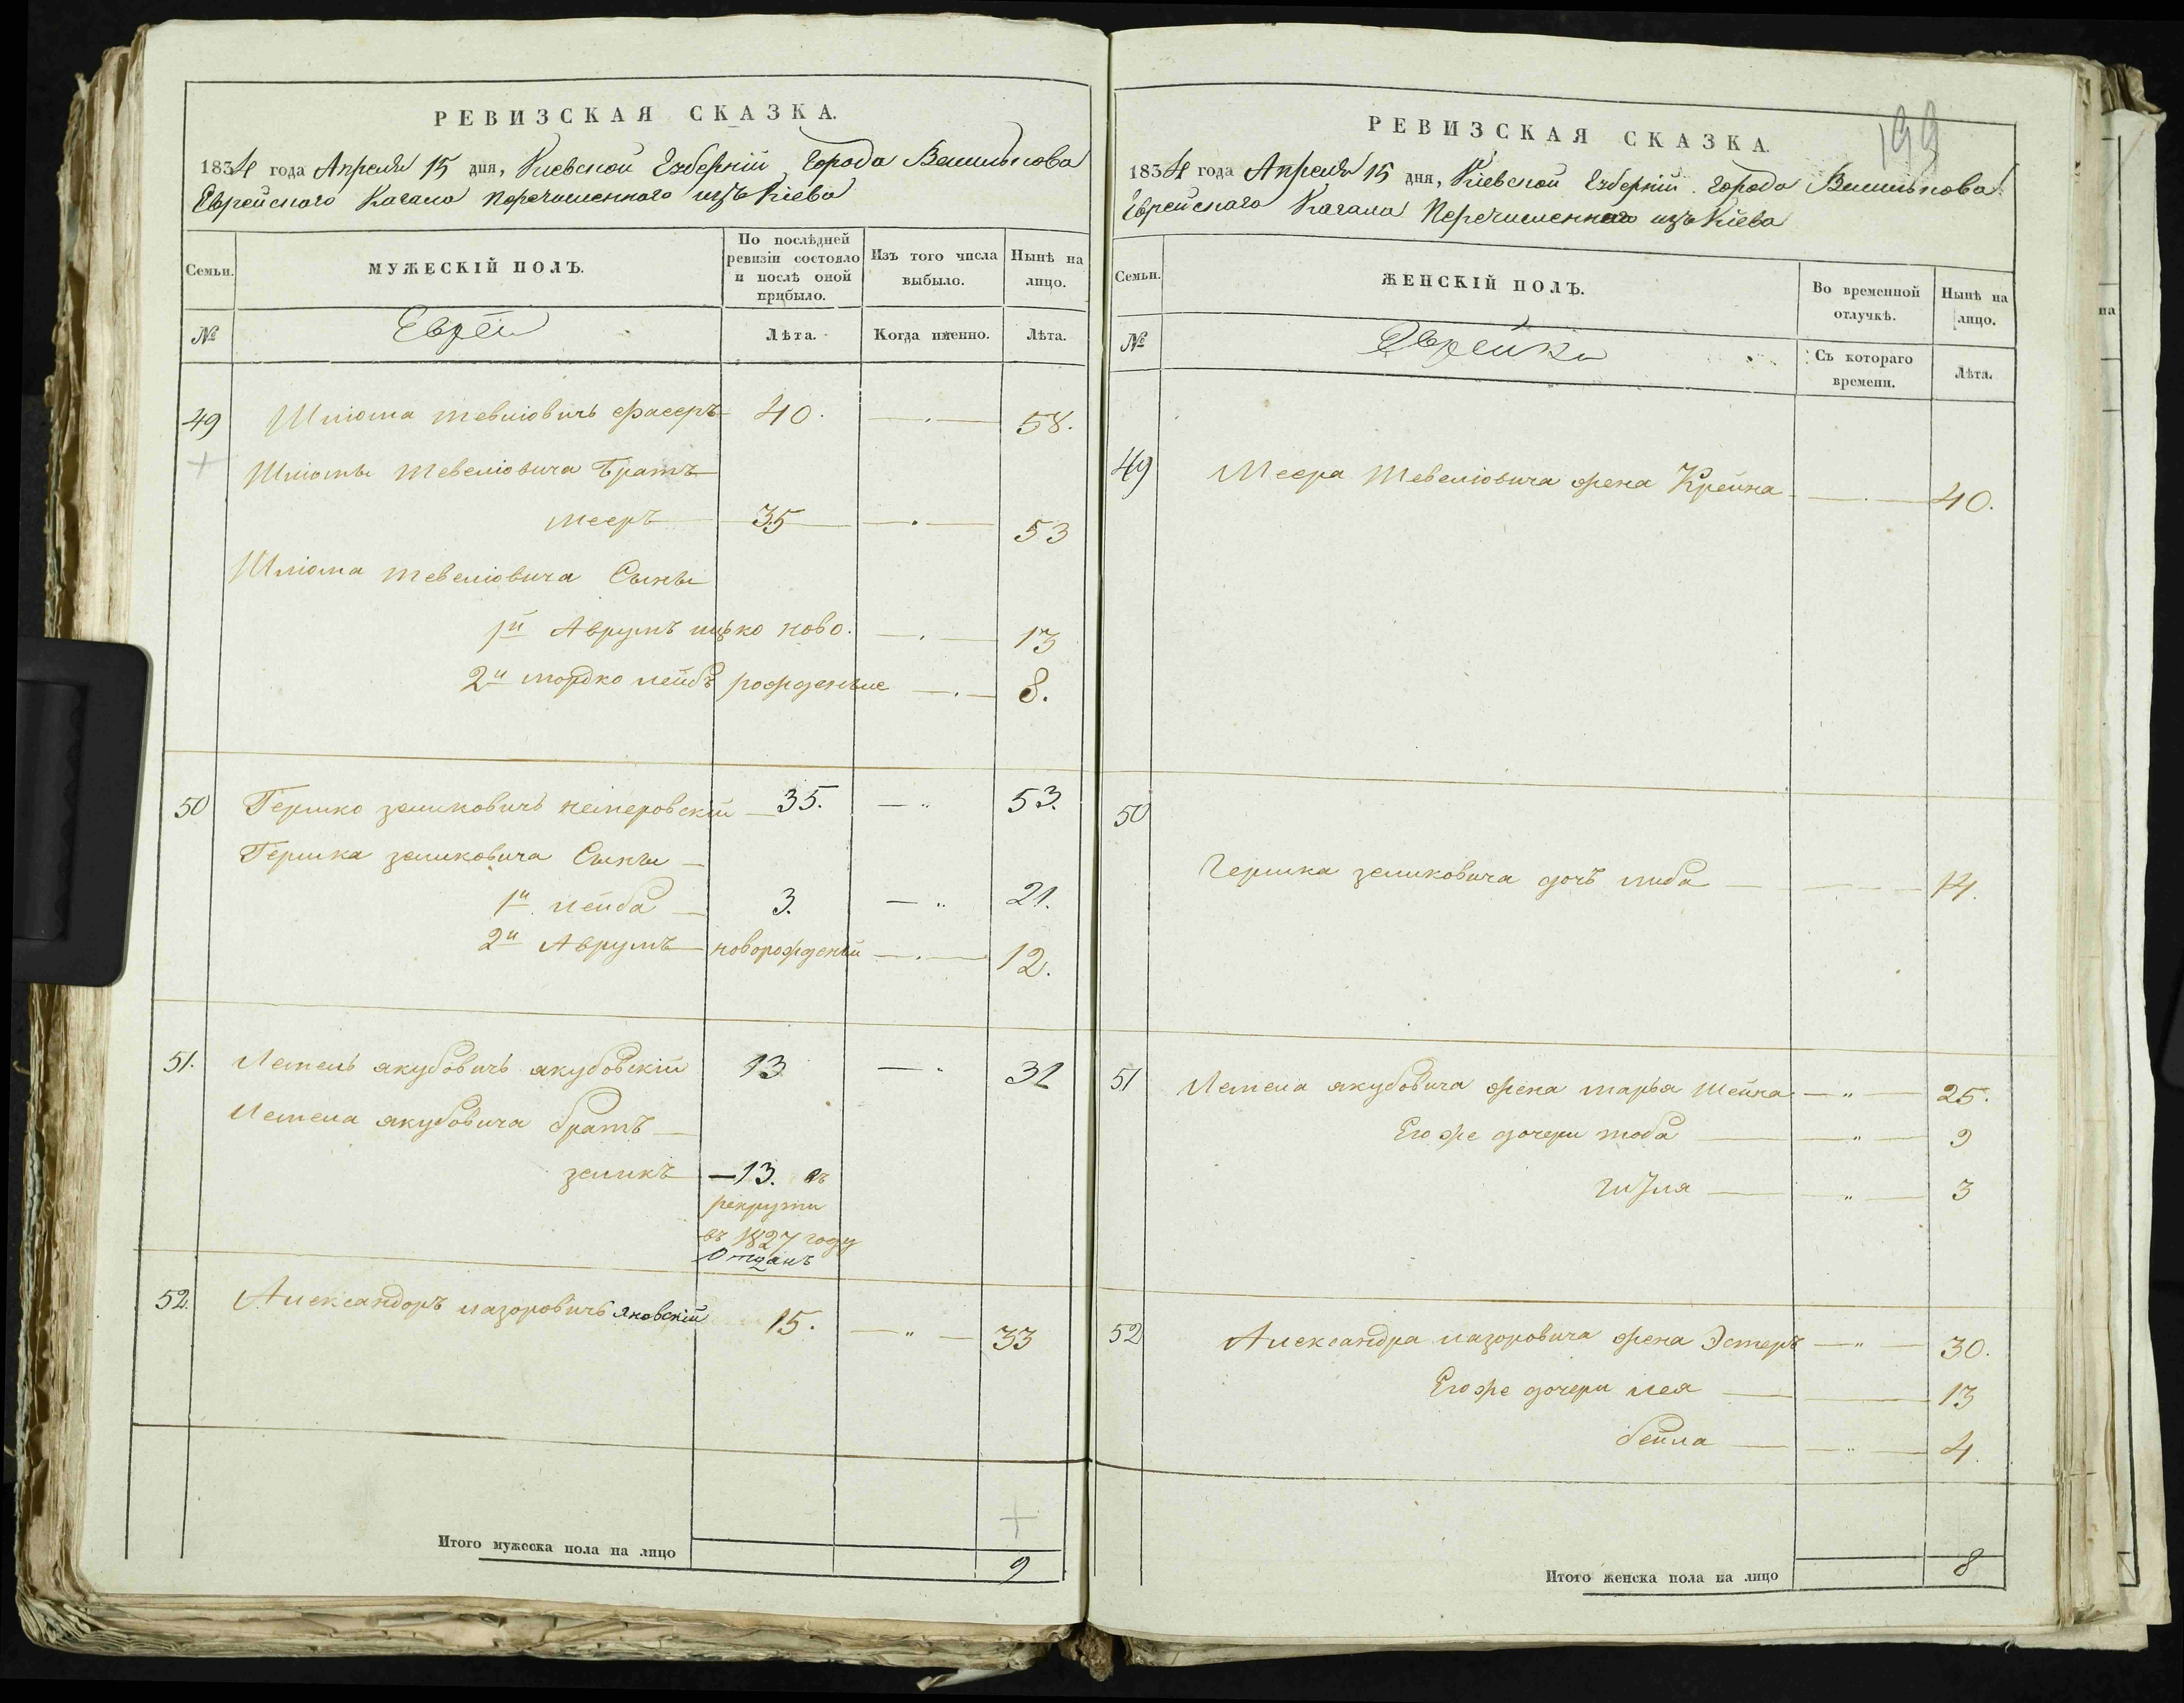 РЕВИЗСКАЯ СКАЗКА.
1834 года Апреля 15 дня, Киевской Губерніи Города Василькова
Еврейского Кагала перечисленного изъ Кіева
Семьи.
МУЖЕСКІЙ ПОЛЪ.
По послѣдней ревизіи состояло и послѣ оной прибыло.
Изъ того числа выбыло.
Нынѣ на лицо.
№
Евреи
Лѣта.
Когда именно.
Лѣта.
49 Шліома тевліовичъ фасеръ 40. 58.
Шліомы тевеліовича братъ
мееръ 35 53
Шліома тевеліовича Сыны
1й Аврумъ ицко ново. 13
2й мордко лейбъ рожденые 8.
50 Гершко зеликовичъ немеровскій 35. 53.
Гершка зеликовича Сыны
1й лейба 3. 21.
2й Аврумъ новорожденый 12.
51. Лемель якубовичъ якубовскій 13 31
Лемела якубовича братъ
зеликъ 13. въ
рекруты
въ 1827 году
Отданъ
52. Александоръ лазоровичъ яновскій 15. 33
Итого мужеска пола на лицо 9
199
РЕВИЗСКАЯ СКАЗКА.
1834 года Апреля 15 дня, Кіевской Губерніи города Василькова
Еврейскаго Кагала Перечисленнаго изъ Кіева
Семьи.
ЖЕНСКІЙ ПОЛЪ.
Во временной отлучкѣ.
Нынѣ на лицо.
№
Еврейки
Съ котораго времени.
Лѣта.
49 Меера Тевеліовича жена Крейна 40.
50
Гершка зелковича дочъ либа 14.
51 Лемела якубовича жена марья шейна 25.
Его же дочери тоба 9
гитля 3
52 Александра лазоровича жена Эстеръ 30.
Его же дочери лея 13
бейла 4.
Итого женска пола на лицо 8